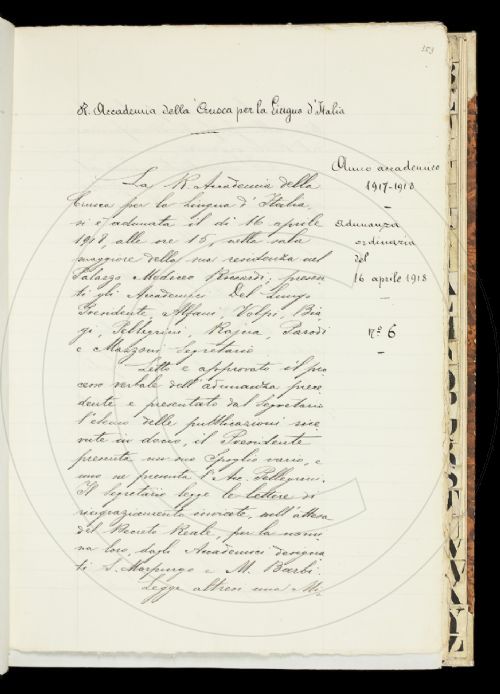 153
R. Accademia della Crusca per la Lingua d'Italia
Anno accademico
1917-1918
Adunanza
ordinaria
del
16 aprile 1918
N.º 6
La R. Accademia della
Crusca per la Lingua d'Italia
si è adunata il dì 16 aprile
1918, alle ore 15, nella sala
maggiore della sua residenza nel
Palazzo Mediceo Riccardi; presen-
ti gli Accademici Del Lungo
Presidente, Alfani, Volpi, Bia-
gi, Pellegrini, Rajna, Parodi
e Mazzoni Segretario.
Letto e approvato il pro-
cesso verbale dell'adunanza prece-
dente e presentato dal Segretario
l'elenco delle pubblicazioni rice-
vute in dono, il Presidente
presenta un suo Spoglio vario, e
uno ne presenta l'Acc. Pellegrini.
Il Segretario legge le lettere di
ringraziamento inviate, nell'attesa
del Decreto Reale, per la nomi-
na loro, dagli Accademici designa-
ti S. Morpurgo e M. Barbi.
Legge altresì una Mi-